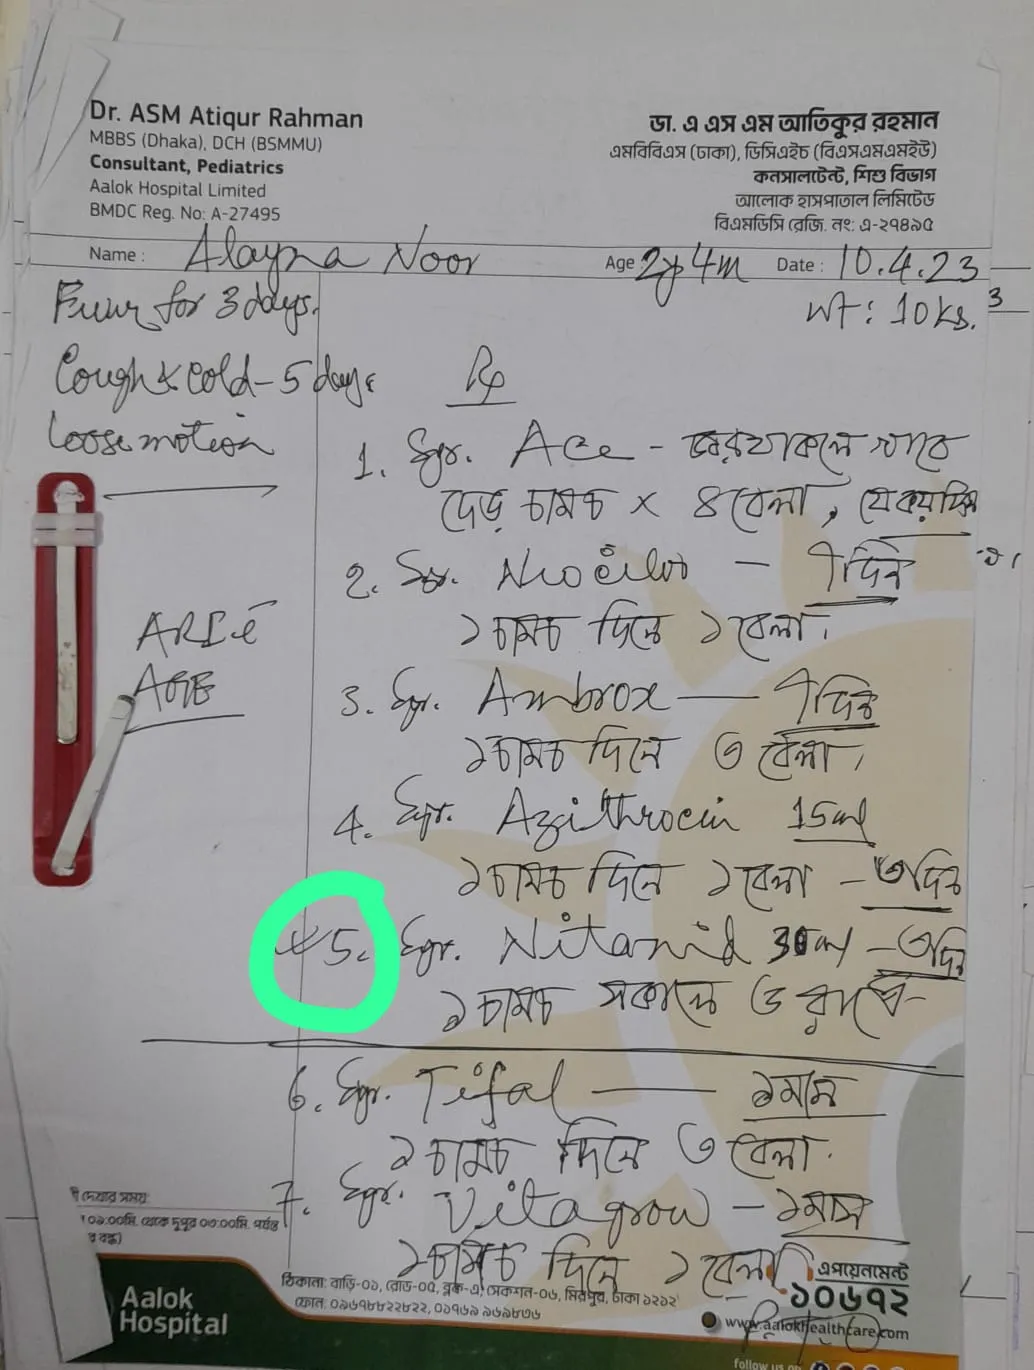 Dr. ASM Atiqur Rahman
MBBS (Dhaka), DCH (BSMMU)
Consultant, Pediatrics
Aalok Hospital Limited
BMDC Reg. No: A-27495
ডা. এ এস এম আতিকুর রহমান
এমবিবিএস (ঢাকা), ডিসিএইচ (বিএসএমএমইউ)
কনসালটেন্ট, শিশু বিভাগ
আলোক হাসপাতাল লিমিটেড
বিএমডিসি রেজি. নং: এ-২৭৪৯৫
Name : Alayna Noor Age : 2y 4m Date : 10.4.23
Wt: 10 kg.
3
Fever for 3 days.
Cough & cold - 5 days
loose motion
Rx
1. Syr. Ace - জ্বর থাকলে খাবে
দেড় চামচ x ৪ বেলা,
2. Syr. - ৭দিন
১ চামচ দিনে ১ বেলা।
ARI
AGE
3. Syr. Ambrox — ৭দিন
১ চামচ দিনে ৩ বেলা।
4. Syr. Azithrocin 15ml
১ চামচ দিনে ১ বেলা - ৩দিন
5. Syr. Nitanid 30ml - ৩দিন
১ চামচ সকালে ও রাতে
6. Syr. — ১মাস
১ চামচ দিনে ৩ বেলা.
7. Syr. Vitagrow - ১মাস
১ চামচ দিনে ১ বেলা
দেখার সময়:
০৯:০০মি. থেকে দুপুর ০৩:০০মি. পর্যন্ত
র বন্ধ)
Aalok
Hospital
ঠিকানা: বাড়ি-০১, রোড-০৫, ব্লক-এ, সেকশন-০৬, মিরপুর, ঢাকা ১২১২
ফোন: ০১৭৬৯ ৯৬৯৮৩৬
এপয়েনমেন্ট
১০৬৭২
www.aalokhealthcare.com
follow us on